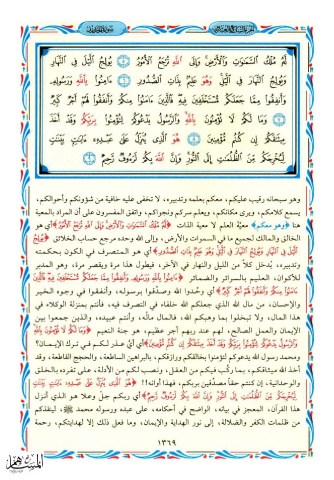 لَّهُ مُلْكُ السَّمَٰوَٰتِ وَالْأَرْضِ وَإِلَى اللَّهِ تُرْجَعُ الْأُمُورُ ۝٥ يُولِجُ الَّيْلَ فِي النَّهَارِ
وَيُولِجُ النَّهَارَ فِي الَّيْلِ وَهُوَ عَلِيمٌ بِذَاتِ الصُّدُورِ ۝٦ ءَامِنُوا بِاللَّهِ وَرَسُولِهِ
وَأَنفِقُوا مِمَّا جَعَلَكُم مُّسْتَخْلَفِينَ فِيهِ فَالَّذِينَ ءَامَنُوا مِنكُمْ وَأَنفَقُوا لَهُمْ أَجْرٌ كَبِيرٌ
۝٧ وَمَا لَكُمْ لَا تُؤْمِنُونَ بِاللَّهِ وَالرَّسُولُ يَدْعُوكُمْ لِتُؤْمِنُوا بِرَبِّكُمْ وَقَدْ أَخَذَ
مِيثَٰقَكُمْ إِن كُنتُم مُّؤْمِنِينَ ۝٨ هُوَ الَّذِي يُنَزِّلُ عَلَىٰ عَبْدِهِ ءَايَٰتٍ بَيِّنَٰتٍ
لِّيُخْرِجَكُم مِّنَ الظُّلُمَٰتِ إِلَى النُّورِ وَإِنَّ اللَّهَ بِكُمْ لَرَءُوفٌ رَّحِيمٌ ۝٩
وهو سبحانه رقيب عليكم، معكم بعلمه وتدبيره، لا تخفى عليه خافية من شؤونكم وأحوالكم،
يسمع كلامكم، ويرى مكانكم، ويعلم سركم ونجواكم، واتفق المفسرون على أن المراد بالمعية
هنا ﴿وهو معكم﴾ معيَّة العلم لا معية الذات ﴿لَّهُ مُلْكُ السَّمَٰوَٰتِ وَالْأَرْضِ وَإِلَى اللَّهِ تُرْجَعُ الْأُمُورُ﴾ أي هو
الخالق والمالك لجميع ما في السموات والأرض، وإلى الله وحده مرجع حساب الخلائق ﴿يُولِجُ
الَّيْلَ فِي النَّهَارِ وَيُولِجُ النَّهَارَ فِي الَّيْلِ وَهُوَ عَلِيمٌ بِذَاتِ الصُّدُورِ﴾ أي هو المتصرف في الكون بحكمته
وتدبيره، يُدخل كلاً من الليل والنهار في الآخر، فيطول هذا مرة ويقصر مرة، وهو المدبر
للأكوان، العليم بالسرائر والضمائر ﴿ءَامِنُوا بِاللَّهِ وَرَسُولِهِ وَأَنفِقُوا مِمَّا جَعَلَكُم مُّسْتَخْلَفِينَ فِيهِ فَالَّذِينَ ءَامَنُوا
مِنكُمْ وَأَنفَقُوا لَهُمْ أَجْرٌ كَبِيرٌ﴾ أي وحدوا الله وصدِّقوا برسوله، وأنفقوا في وجوه الخير
والإحسان، من مال الله الذي جعلكم الله خلفاء في التصرف فيه، فأنتم بمنزلة الوكلاء في
هذا المال، ولا تبخلوا بما وهبكم الله، فالمال مالُه، وأنتم عبيده، والذين جمعوا بين
الإيمان والعمل الصالح، لهم عند ربهم أجر عظيم، هو جنة النعيم ﴿وَمَا لَكُمْ لَا تُؤْمِنُونَ بِاللَّهِ
وَالرَّسُولُ يَدْعُوكُمْ لِتُؤْمِنُوا بِرَبِّكُمْ وَقَدْ أَخَذَ مِيثَٰقَكُمْ إِن كُنتُم مُّؤْمِنِينَ﴾ أي أيُّ عذر لكم في ترك الإيمان؟
ومحمد رسول الله يدعوكم لتؤمنوا بخالقكم ورازقكم، بالبراهين الساطعة، والحجج القاطعة، وقد
أخذ الله ميثاقكم، بما ركَّب فيكم من العقل، ونصب لكم من الأدلة، على تفرده بالخلق
والوحدانية، إن كنتم حقاً مصدِّقين بربكم، فهذا أوانه!! ﴿هُوَ الَّذِي يُنَزِّلُ عَلَىٰ عَبْدِهِ ءَايَٰتٍ بَيِّنَٰتٍ
لِّيُخْرِجَكُم مِّنَ الظُّلُمَٰتِ إِلَى النُّورِ وَإِنَّ اللَّهَ بِكُمْ لَرَءُوفٌ رَّحِيمٌ﴾ أي ربكم جل وعلا هو الذي أنزل
هذا القرآن، المعجز في بيانه، الواضح في أحكامه، على عبده ورسوله محمد ﷺ، لينقذكم
من ظلمات الكفر والضلالة، إلى نور الهداية والإيمان، وما فعل ذلك إلا لهدايتكم، رحمة
١٣٦٩